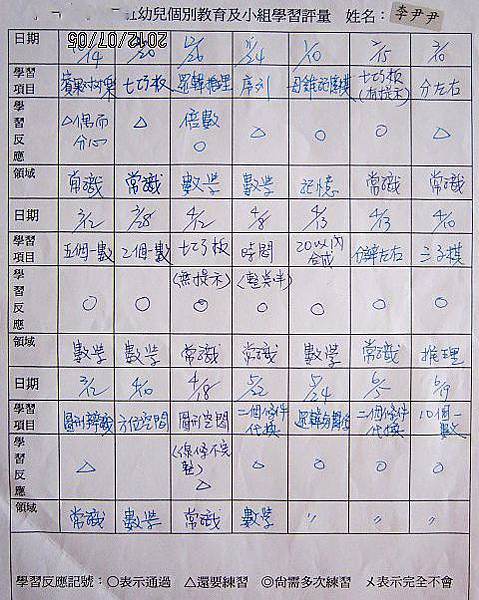 幼兒個別教育及小組學習評量 姓名：李尹尹
2012/07/05
日期 14 20 12/26 2/24 1/10 2/15 3/10
學習項目 七巧板 邏輯推理 序列 七巧板(有提示) 分左右
學習反應 △偶而分心 △ 倍數○ △ ○ ○ △
領域 常識 常識 數學 數學 記憶 常識 常識
日期 3/12 3/28 4/12 4/8 4/13 4/13 4/10
學習項目 五個一數 2個一數 七巧板(無提示) 時間(整點半) 20以內合成 分辨左右 三子棋
學習反應 ○ ○ ○ ○ ○ ○ ○
領域 數學 數學 常識 常識 數學 常識 推理
日期 3/12 4/10 4/18 5/22 5/24 6/5 6/19
學習項目 方位空間 圖形空間 二個條件代換 二個條件代換 10個一數
學習反應 △ ○ △ ○ ○ ○ ○
領域 常識 數學 常識 數學 〃 〃 〃
學習反應記號：○表示通過 △還要練習 ◎尚需多次練習 ㄨ表示完全不會